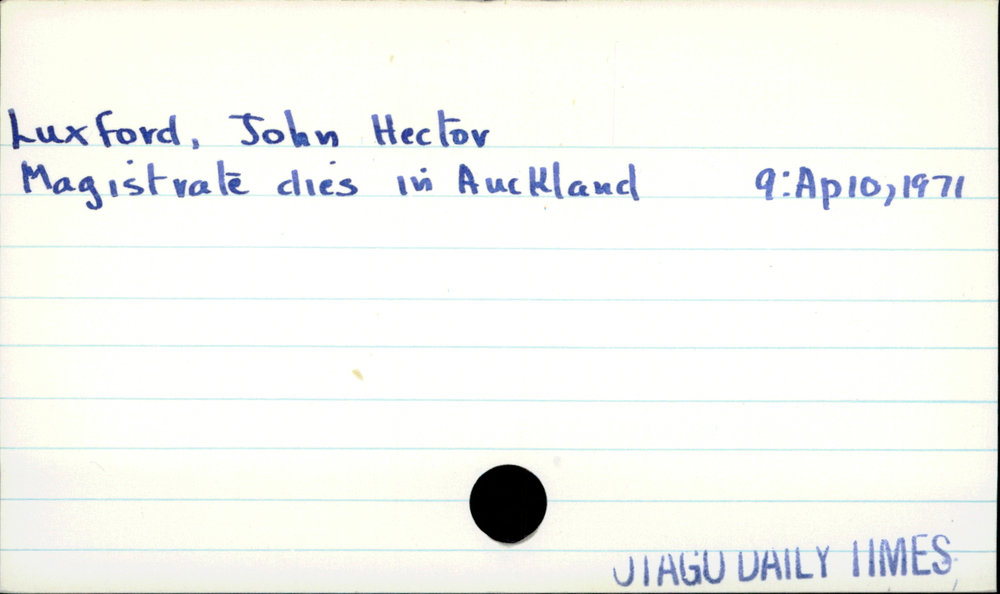 Luxford, John Hector
Magistrate dies in Auckland 9:Ap10,1971
OTAGO DAILY TIMES